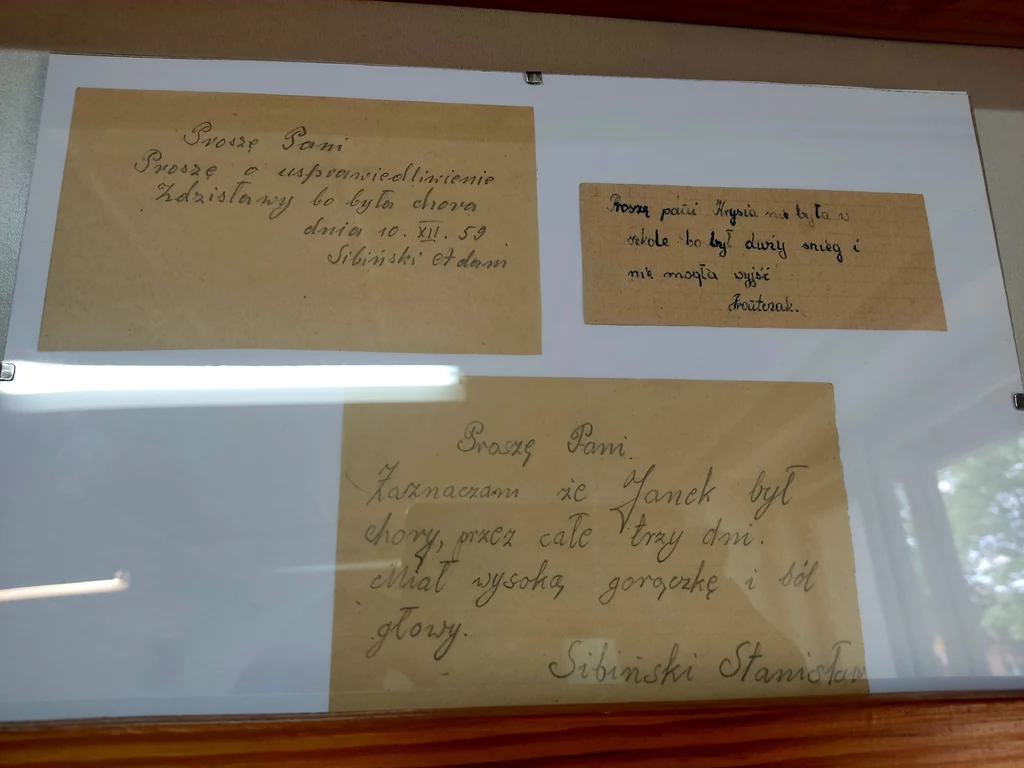 Proszę Pani
Proszę o usprawiedliwienie
Zdzisławy bo była chora
dnia 10. XII. 59
Sibiński Adam
Proszę pani Krysia nie była w
szkole bo był duży snieg i
nie mogła wyjść
Proszę Pani.
Zaznaczam że Janek był
chory, przez całe trzy dni.
Miał wysoką gorączkę i ból
głowy.
Sibiński Stanisław